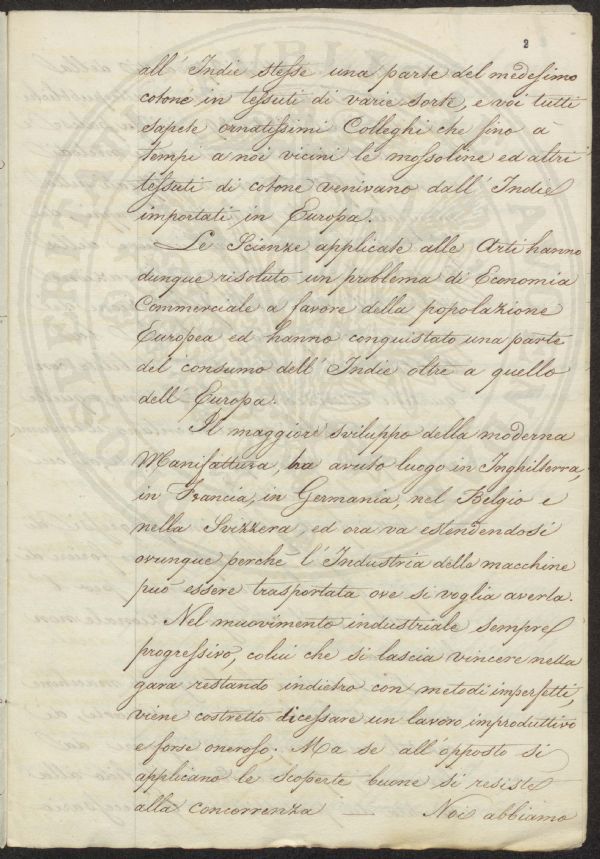 2
all' Indie stesse una parte del medesimo
cotone in tessuti di varie sorte, e voi tutti
sapete ornatissimi Colleghi che fino a
tempi a noi vicini le mossoline ed altri
tessuti di cotone venivano dall' Indie
importati in Europa.
Le Scienze applicate alle Arti hanno
dunque risoluto un problema di Economia
Commerciale a favore della popolazione
Europea ed hanno conquistato una parte
del consumo dell' Indie oltre a quello
dell' Europa.
Il maggiore sviluppo della moderna
Manifattura, ha avuto luogo in Inghilterra,
in Francia, in Germania, nel Belgio e
nella Svizzera, ed ora va estendendosi
ovunque perche l' Industria delle macchine
può essere trasportata ove si voglia averla.
Nel muovimento industriale sempre
progressivo, colui che si lascia vincere nella
gara restando indietro con metodi imperfetti,
viene costretto di cessare un lavoro improduttivo
e forse oneroso; Ma se all' opposto si
applicano le scoperte buone si resiste
alla concorrenza — Noi abbiamo